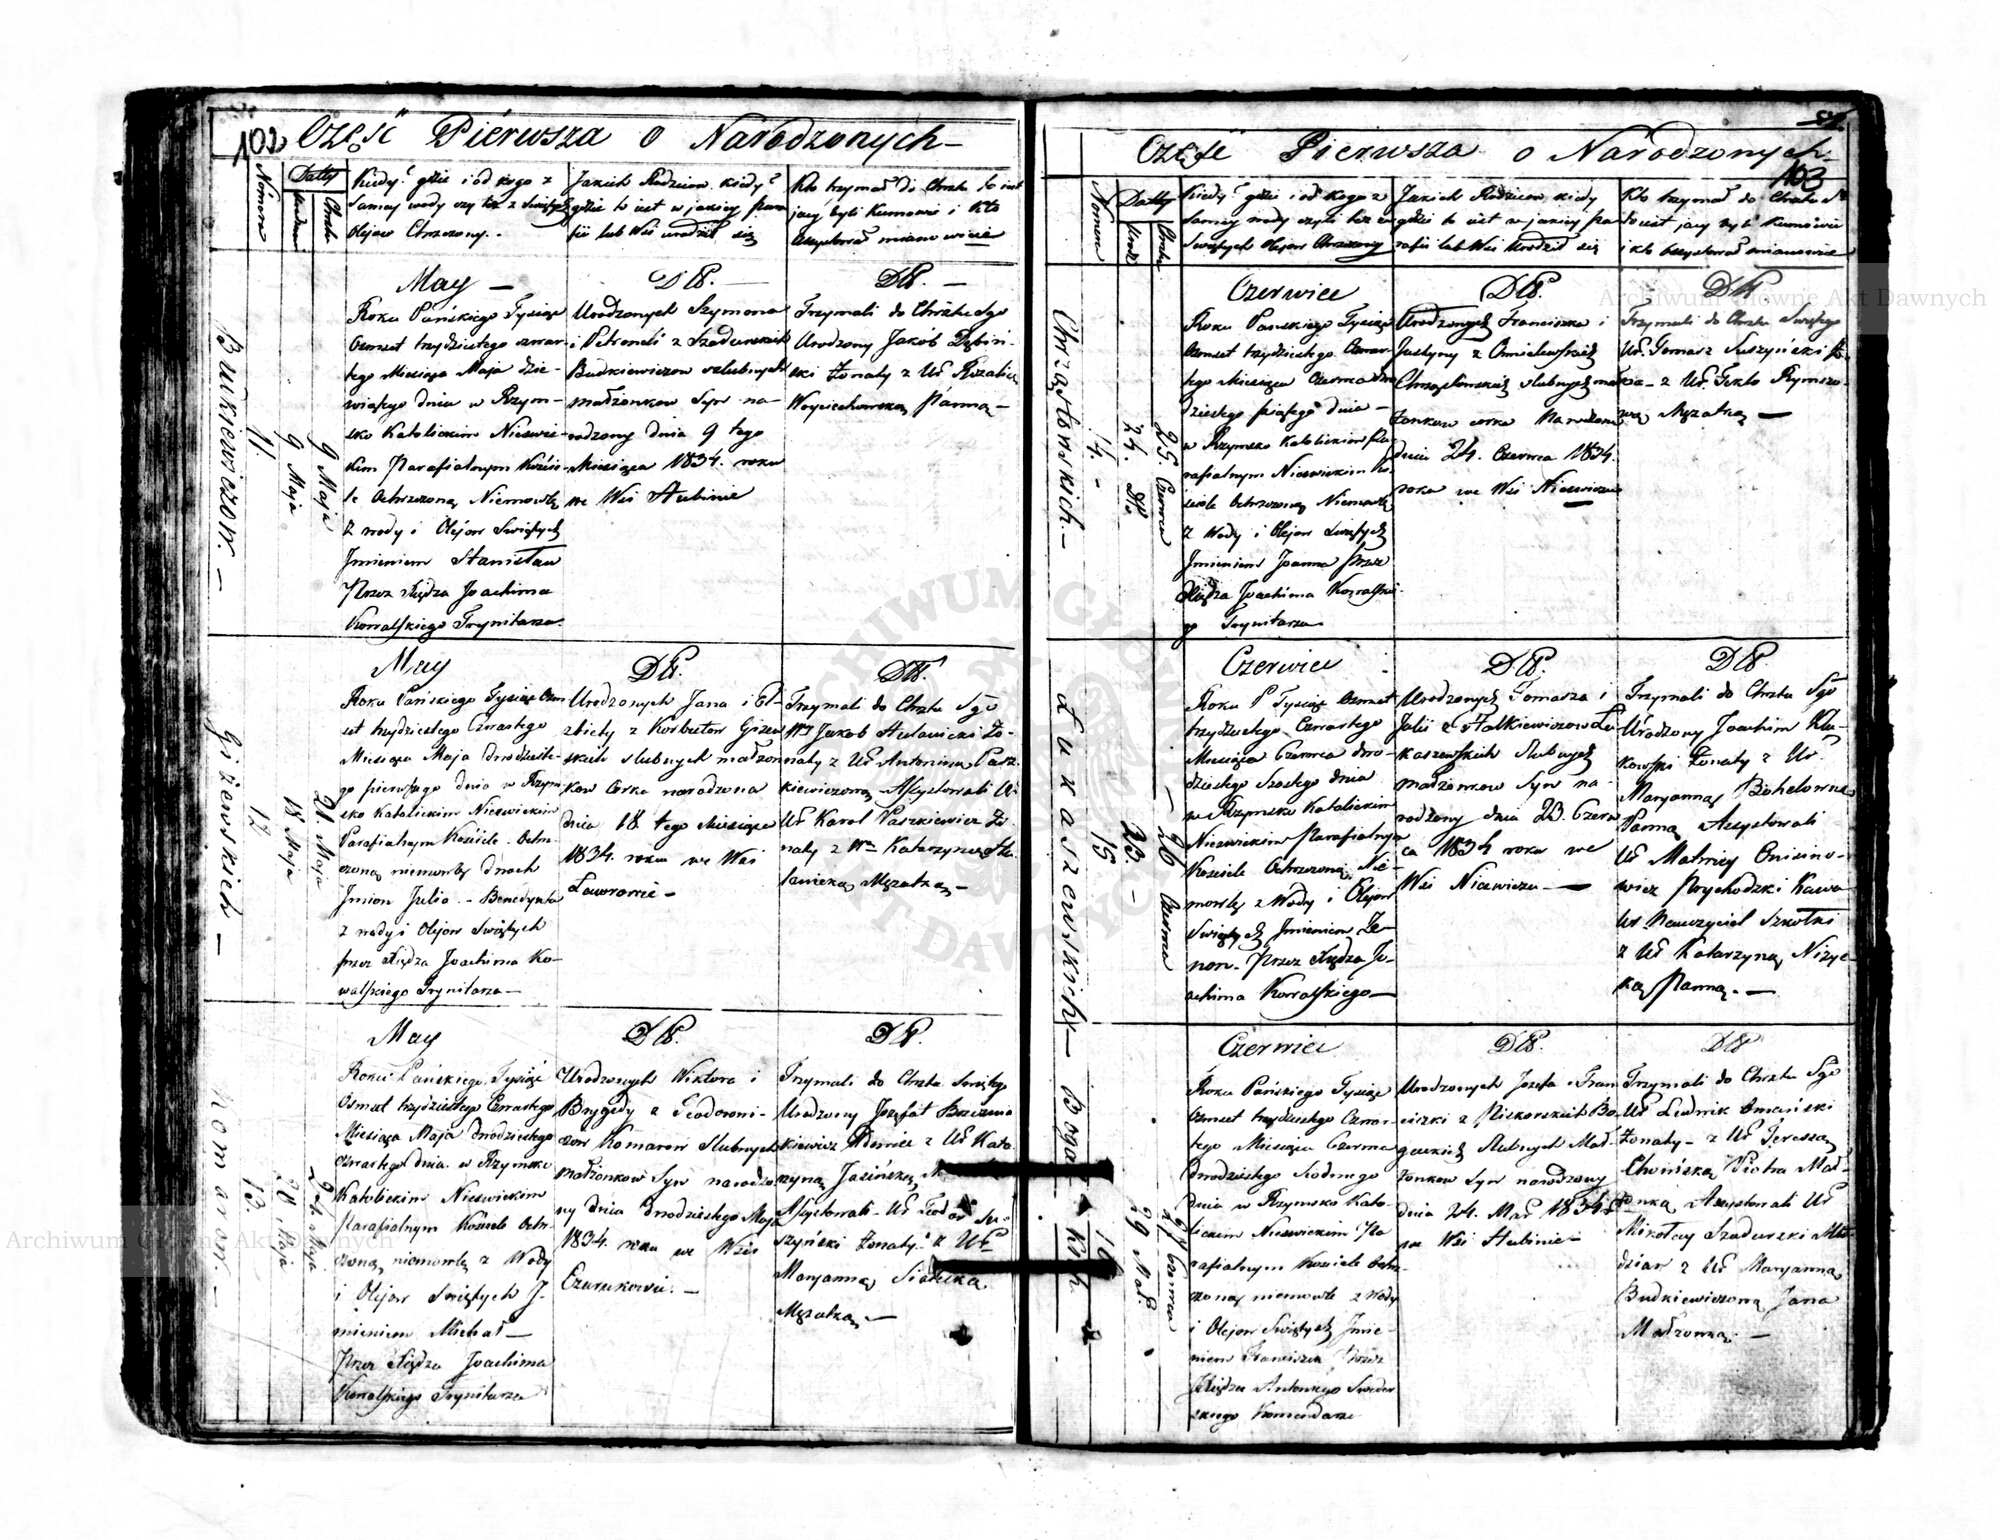 102 Część Pierwsza o Narodzonych
Nomera
Datty
Urodzen
Chrztu
Kiedy? gdzie i od kogo z
samey wody czy też z Swiętych
Olejow Chrzczony.
Jakich Rodzicow kiedy?
gdzie to iest w jakiey para
fii lub Wsi urodził się
Kto trzymał do Chrztu to iest
jacy byli Kumowie i Kto
Assystował mianowicie
Budkiewiczow.
11.
9 Maja
9 Maja
May
Roku Pańskiego Tysiąc
Osmset trzydziestego czwar
tego Miesiąca Maja dzie-
wiątego dnia w Rzym-
sko Katolickim Nieswie-
kim Parafialnym Kościo-
le Ochrzczoną Niemowle
z wody i Olejow Swiętych
Jmieniem Stanisław
Przez Xiędza Joachima
Kowalskiego Trynitarza
Dtt.
Urodzonych Szymona
i Petroneli z Szadurskich
Budkiewiczow szlubnych
małżonkow Syn na-
rodzony dnia 9 tego
Miesiąca 1834. roku
we Wsi Stubinie
Dtt.
Trzymali do Chrztu Sgo
Urodzony Jakób Dębiń-
ski Żonaty z Ur Rozalią
Woyciechowską Panną
Giżewskich
12
18 Maja
21. Maja
May
Roku Pańskiego Tysiąc Osm
set trzydziestego Czwartego
Miesiąca Maja dwudzieste-
go pierwszego dnia w Rzym
sko Katolickim Nieswickim
Parafialnym Kościele Ochrz-
czoną niemowlę dwoch
Jmion Julia - Benedykta
z wody i Olejow Swiętych
przez Xiędza Joachima Ko-
walskiego Trynitarza
Dtt.
Urodzonych Jana i El-
zbiety z Korbutow Gizew
skich slubnych małżon
kow Corka narodzona
dnia 18 tego Miesiąca
1834. roku we Wsi
Ławrowie
Dtt.
Trzymali do Chrztu Sgo
Jakob Żo-
naty z Ur Antoniną Pasz
kiewiczową Assystowali
Ur Karol Paszkiewicz Żo
naty z Katarzyną
Męzatką
Komarow.
13.
20 Maja
24 Maja
May
Roku Pańskiego Tysiąc
Osmset trzydziestego Czwartego
Miesiąca Maja dwudziestego
czwartego dnia w Rzymsko
Katolickim Nieswickim
Parafialnym Kościele Ochrz-
czoną niemowlę z Wody
i Olejow Swiętych J-
mieniem Michał
Przez Xiędza Joachima
Kowalskiego Trynitarza
Dtt.
Urodzonych Wiktora i
Brygidy z Teodorowi-
czow Komarow Slubnych
małżonkow Syn narodzo
ny dnia dwudziestego Maja
1834. roku we Wsi
Dtt.
Trzymali do Chrztu Swiętego
Urodzony Jozefat
kiewicz z Ur Kata
rzyną Jasińską
Assystowali Ur Teodor Su-
szyński Żonaty z Ur
Maryanną
Męzatką
Część Pierwsza o Narodzonych
103
Nomera
Datty
Urodz
Chrztu
Kiedy? gdzie i od kogo z
Samey wody czyli też z
Swiętych Olejow Chrzczony
Jakich Rodzicow kiedy
gdzie to iest w jakiey pa
rafii lub Wsi Urodził się
Kto trzymał do Chrztu S
to iest jacy byli Kumowie
i kto Assystował mianowicie
Chrząstowskich
14.
24.
25. Czerwca
Czerwiec
Roku Pańskiego Tysiąc
Osmset trzydziestego Czwar-
tego Miesiąca Czerwca dwu
dziestego piątego dnia
w Rzymsko Katolickim Pa-
rafialnym Nieswickim Ko-
ściele Ochrzczoną Niemowlę
z Wody i Olejow Swiętych
Jmieniem Joanna Przez
Xiędza Joachima Kowalskie-
go Trynitarza
Dtt.
Urodzonych Franciszka i
Justyny z Chmielewskich
Chrząstowskich slubnych mał
żonkow corka Narodzona
dnia 24. Czerwca 1834.
roku we Wsi Niewiczu
Dtt
Trzymali do Chrztu Swiętego
Ur. Tomasz Suszyński
z Ur. Teklą Rymszo-
wą Męzatką
Łukaszewskich
15
23.
26 Czerwca
Czerwiec
Roku P Tysiąc Osmset
trzydziestego Czwartego
Miesiąca Czerwca dwu-
dziestego Szostego dnia
w Rzymsko Katolickim
Nieswickim Parafialnym
Kościele Ochrzczoną Nie-
mowlę z Wody i Olejow
Swiętych Jmieniem Ze-
non. Przez Xiędza Jo-
achima Kowalskiego
Dtt.
Urodzonych Tomasza i
Julii z Falkiewiczow Łu
kaszewskich Slubnych
małżonkow Syn na-
rodzony dnia 23. Czerw
ca 1834 roku we
Wsi Niewiczu
Dtt
Trzymali do Chrztu Sgo
Urodzony Joachim
Żonaty z Ur.
Maryanną
Panną Assystowali
Ur
Prychodzki Kawa
ler Nauczyciel Szkołki
z Ur Katarzyną
Panną.
Boga kich
16
29 Mar.
27 Czerwca
Czerwiec
Roku Pańskiego Tysiąc
Osmset trzydziestego Czwar-
tego Miesiąca Czerwca
dwudziestego Siodmego
dnia w Rzymsko Kato-
lickim Nieswickim Pa
rafialnym Kościele Ochrz-
czoną niemowle z Wody
i Olejow Swiętych Jmie-
niem Franciszek Przez
Xiędza Antoniego
Komendarza
Dtt.
Urodzonych Jozefa i Fran
ciszki z Piskorskich Bo-
guckich Slubnych Mał-
żonkow Syn narodzony
dnia 24. Mar 1834 r
we Wsi Stubinie
Dtt
Trzymali do Chrztu Sgo
Ur Ludwik
Żonaty z Ur Teressą
Piotra Mał-
żonką Assystowali Ur
Mikołay Szadurski
z Ur Maryanną
Budkiewiczową Jana
Małżonką.
Archiwum Główne Akt Dawnych
Archiwum Główne Akt Dawnych
ARCHIWUM GŁÓWNE AKT DAWNYCH